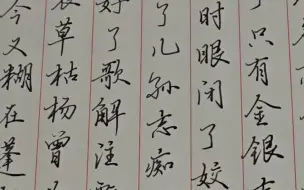 了只有金银
时眼闭了姣
了儿孙忘痴
好了歌解注
草枯杨曾
今又糊在蓬